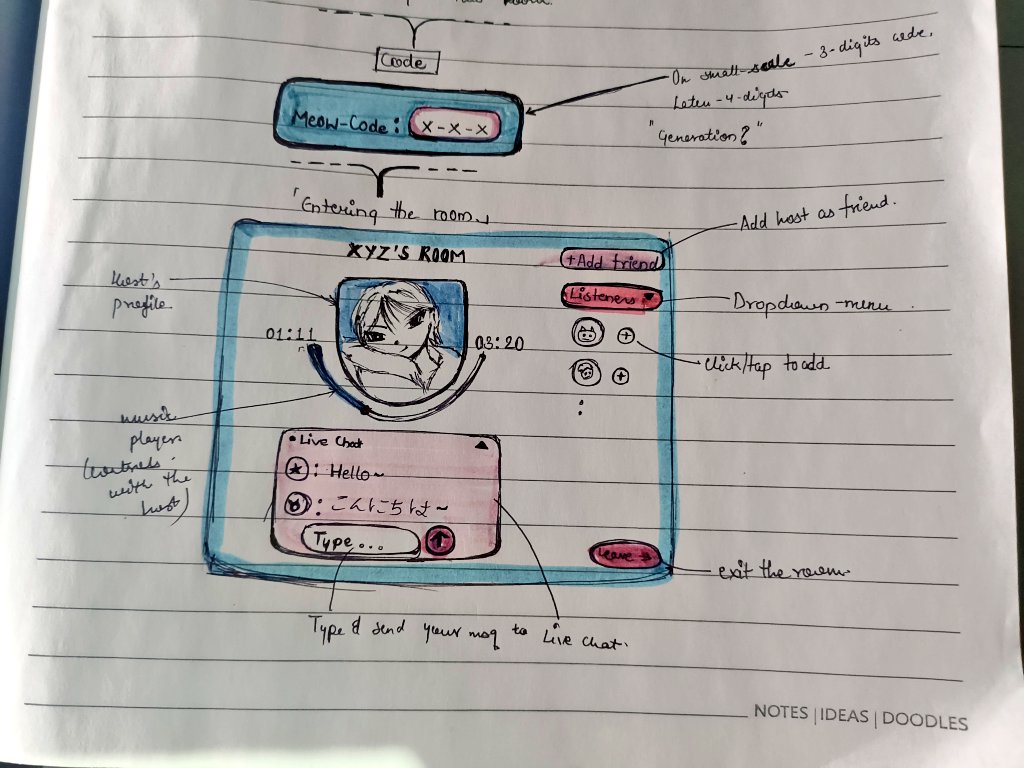 room.
Code
On small-scale - 3-digits code.
Later - 4-digits
"Generation?"
Meow-Code: X-X-X
「Entering the room」
Add host as friend.
XYZ'S ROOM
+Add friend
Host's
profile
Listeners ▼
Dropdown-menu.
01:11
03:20
click/tap to add
music
player
with the
host)
• Live Chat ▲
: Hello~
: こんにちは~
Type...
Leave →
exit the room.
Type & send your msg to Live chat.
NOTES | IDEAS | DOODLES